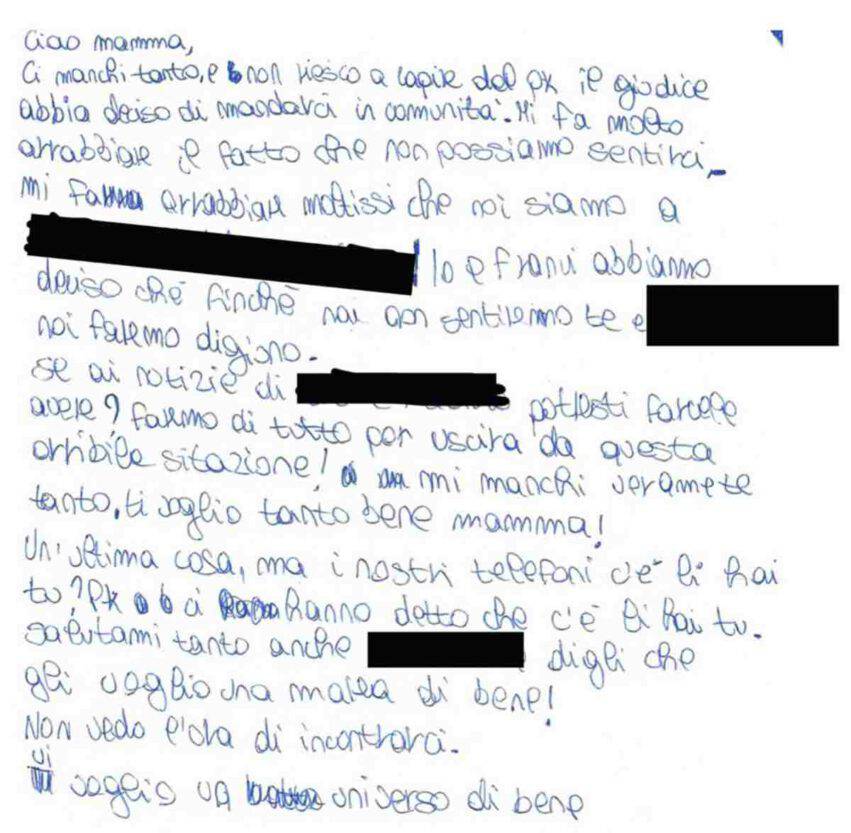 Ciao mamma,
Ci manchi tanto, e non riesco a capire del pk il giudice
abbia deciso di mandarci in comunita'. Mi fa molto
arrabbiare il fatto che non possiamo sentirci,
mi fa arrabbiare moltissi che noi siamo a
Io e frani abbiamo
deciso che finchè noi non sentiremo te e
noi faremo digiono.
se ai notizie di potresti farcele
avere? faremo di tutto per uscira da questa
orribile sitazione! mi manchi veramete
tanto, ti voglio tanto bene mamma!
Un'ultima cosa, ma i nostri telefoni c'è li hai
tu? Pk ci hanno detto che c'è li hai tu.
salutami tanto anche digli che
gli voglio una marea di bene!
Non vedo l'ora di incontrarci.
vi
voglio un universo di bene